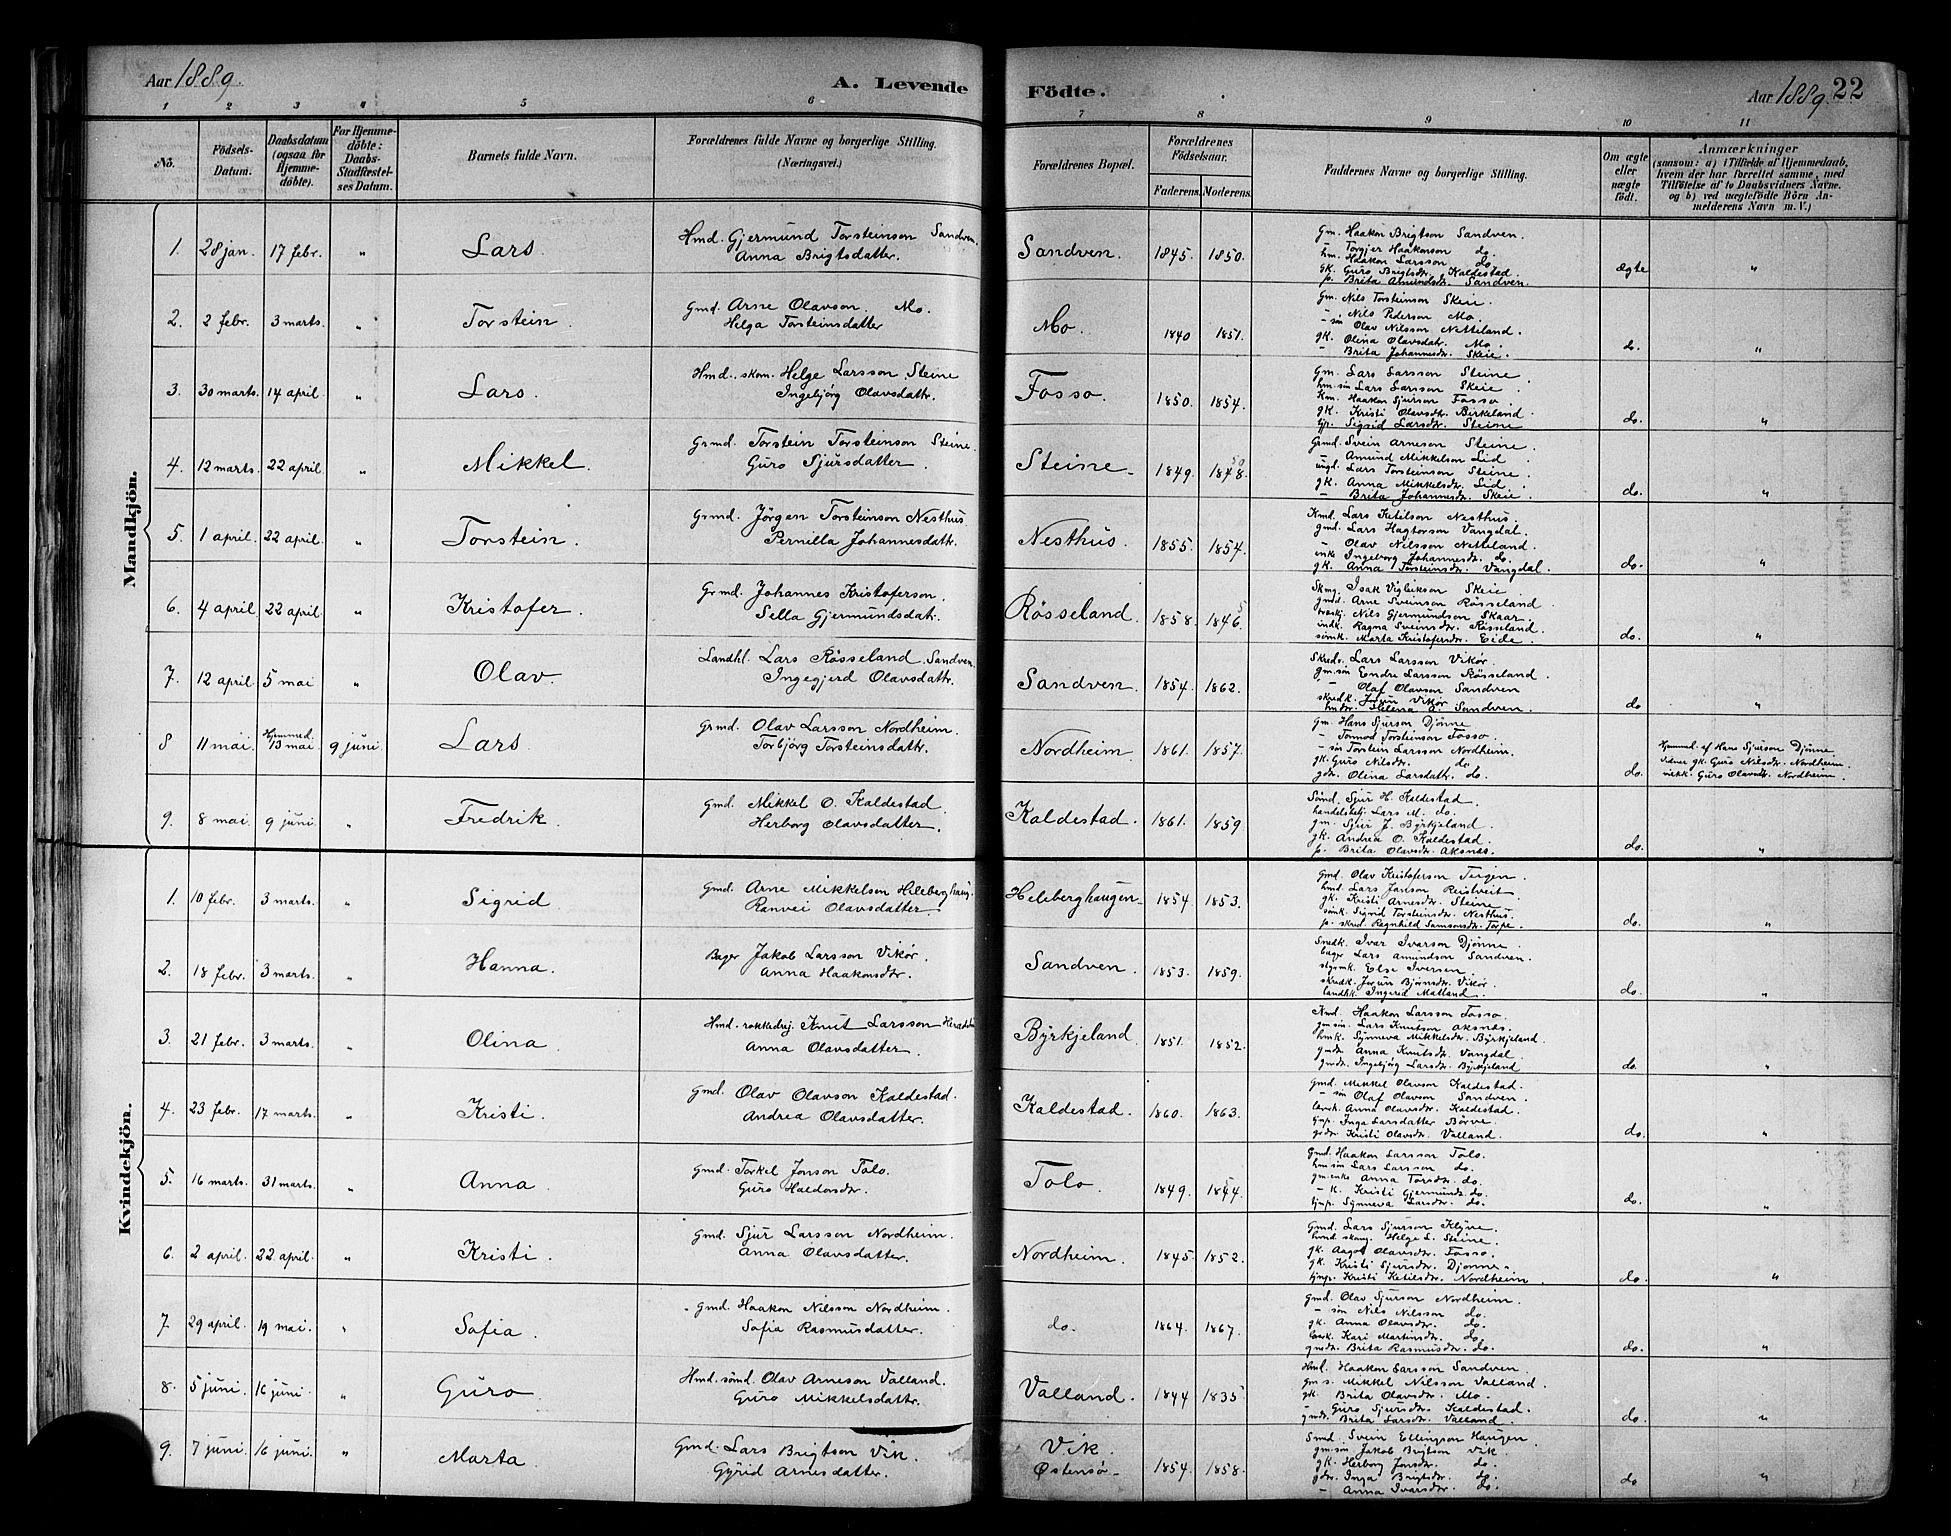 Aar 1889.
A. Levende Födte.
Aar 1889. 22
1 2 3 4 5 6 7 8 9 10 11
No.
Födsels-Datum.
Daabsdatum (ogsaa for Hjemme-döbte).
For Hjemme-döbte: Daabs-Stadfæstel-ses Datum.
Barnets fulde Navn.
Forældrenes fulde Navne og borgerlige Stilling. (Næringsvei.)
Forældrenes Bopæl.
Forældrenes Födselsaar.
Faderens. Moderens.
Faddernes Navne og borgerlige Stilling.
Om ægte eller uægte födt.
Anmærkninger
(saasom: a) i Tilfælde af Hjemmedaab,
hvem der har forrettet samme, med
Tilföielse af to Daabsvidners Navne.
og b) ved uægtefödte Börn An-
melderens Navn m. V.)
Mandkjön.
1. 28 jan. 17 febr. " Lars Hmd. Gjermund Torsteinson Sandven.
Anna Brigtsdatter.
Sandven. 1845. 1850.
Gm. Haakon Brigtson Sandven.
hm. Torgjer Haakonson do.
hm. Haakon Larsson do
gk. Guro Brigtsdr. Kaldestad.
p. Brita Amundsdr. Sandven.
ægte "
2. 2 febr. 3 marts. " Torstein. Gmd. Arne Olavson. Mo.
Helga Torsteinsdatter
Mo. 1840 1851.
Gm. Nils Torsteinson Skeie.
Nils Pederson Mo.
- sön Olav Nilsson Netteland.
gk. Olina Olavsdatr. Mo.
- Brita Johannesdr. Skeie.
do. "
3. 30 marts. 14 april. " Lars. Hmd. skom. Helge Larsson Steine
Ingebjörg Olavsdatr.
Fosso. 1850. 1854.
Gm. Lars Larsson Steine.
hm. sön Lars Larsson Skeie.
Km. Haakon Sjurson Fosso.
gk. Kristi Olavsdr. Birkeland.
tjp. Sigrid Larsdr. Steine
do. "
4. 12 marts. 22 april. " Mikkel. Grmd. Torstein Torsteinson Steine.
Guro Sjursdatter.
Steine 1849. 1848. 50
Grmd. Svein Arneson Steine.
Amund Mikkelson Lid.
ungd. Lars Torsteinson Steine.
gk. Anna Mikkelsdr. Lid.
- Brita Johannesdr. Skeie.
do. "
5. 1 april. 22 april. " Torstein. Grmd. Jörgen Torsteinson Nesthus.
Pernilla Johannesdatr.
Nesthus. 1855. 1854.
Kmd. Lars Ketilson Nesthus.
gmd. Lars Hagtorson Vangdal.
- Olav Nilsson Netteland.
enke Ingeborg Johannesdr. do.
gk. Anna Torsteinsdr. Vangdal.
do. "
6. 4 april. 22 april. " Kristofer. Grmd. Johannes Kristoferson.
Sella Gjermundsdatr.
Rösseland. 1858. 1846. 5
Skmg. Isak Vigleikson Skeie.
gmd. Arne Sveinson Rösseland.
Nils Gjermundson Skaar.
indk. Ragna Sveinsdr. Rösseland.
sömk. Marta Kristofersdr. Eide.
do. "
7. 12 april. 5 mai " Olav. Landhl. Lars Rösseland Sandven.
Ingegjerd Olavsdatr.
Sandven. 1854. 1862.
Skredr. Lars Larsson Vikör.
gm. sön Endre Larsson Rösseland.
- Olaf Olavson Sandven
skredk. Jorun Vikör
Helena A. Sandven.
do "
8 11 mai. Hjemmed. 13 mai 9 juni. Lars Grmd. Olav Larsson Nordheim.
Torbjörg Torsteinsdatr.
Nordheim 1861. 1857.
Gm. Hans Sjurson Djönne
- Tormod Torsteinson Fosso.
- sön Torstein Larsson Nordheim.
gk. Guro Nilsdr. do.
gdr. Olina Larsdatr. do.
do. Hjemmd. af Hans Sjurson Djönne
vidner gk. Guro Nilsdr. Nordheim.
Guro Olavsdr. Nordheim.
9. 8 mai. 9 juni. " Fredrik. Gmd. Mikkel O. Kaldestad.
Herborg Olavsdatter.
Kaldestad. 1861. 1859
Sönd. Sjur H. Kaldestad.
handelsbetj. Lars M. do.
gm. Sjur J. Byrkjeland.
gk. Andrea O. Kaldestad.
p. Brita Olavsdr. Aksnæs.
do. "
Kvindekjön.
1. 10 febr. 3 marts. " Sigrid Gmd. Arne Mikkelson Heleberghaug.
Ranvei Olavsdatter
Heleberghaugen 1854. 1853.
Gmd. Olav Kristoferson Teigen.
hmd. Lars Janson Reistveit
gk. Kristi Arnesdr. Steine
sömk. Sigrid Torsteinsdr. Nesthus.
p. skred. Ragnhild Samsonsdr. Torpe.
do. "
2. 18 febr. 3 marts. " Hanna. Bager Jakob Larsson Vikør.
Anna Haakonsdr.
Sandven. 1853. 1859.
Snedk. Ivar Ivarson Djönne.
bager Lars Amundson Sandven.
Else Iversen.
skredk. Jorun Björnsdr. Vikör.
landhk. Ingerid Matland.
do. "
3. 21 febr. 3 marts. " Olina. Hmd. rokkedrej. Knut Larsson
Anna Olavsdatter.
Byrkjeland 1851. 1852.
Kmd. Haakon Larsson Fosso.
gm. sön. Lars Knutson Aksnæs.
hmk. Synneva Mikkelsdr. Byrkjeland.
gmdr. Anna Knutsdr. Vangdal
gmdr. Ingebjörg Larsdr. Byrkjeland
do. "
4. 23 febr. 17 marts. " Kristi. Gmd. Olav Olavson Kaldestad.
Andrea Olavsdatter.
Kaldestad. 1860. 1863.
Gmd. Mikkel Olavson Kaldestad.
- sön Olaf Olavson Sandven.
Anna Olavsdr. Kaldestad.
tjnp. Inga Larsdatter Börve.
grdr. Kristi Olavsdr. Valland.
do. "
5. 16 marts. 31 marts. " Anna Gmd. Torkel Jonson Tolo.
Guro Haldorsdr.
Tolo. 1849. 1844.
Gmd. Haakon Larsson Tolo.
hm sön Lars Larsson do.
gm. enke Anna Torsdr. do.
- k. Kristi Gjermunds. do.
tjnp. Synneva Larsdr. do.
do. "
6. 2 april. 22 april. " Kristi. Gmd. Sjur Larsson Nordheim.
Anna Olavsdatter.
Nordheim. 1845. 1852.
Gmd. Lars Sjurson Klyve.
hmd skomg. Helge L. Steine.
gk. Aagot Olavsdr. Fosso.
gk. Kristi Sjursdr. Djönne
tjnp. Kristi Ketilsdr. Nordheim.
do. "
7. 29 april. 19 mai. " Sofia. Gmd. Haakon Nilsson Nordheim.
Sofia Rasmusdatter.
do. 1864. 1867.
Gmd. Olav Sjurson Nordheim.
- sön Nils Nilsson do.
gk. Anna Olavsdr. do.
Kari Martinsdr. do.
gmdr. Brita Rasmusdr. do.
do. "
8. 5 juni. 16 juni. " Guro. Hmd. sönd. Olav Arneson Valland.
Guro Mikkelsdatr.
Valland. 1844 1835
Hmd. Haakon Larsson Sandven.
gm s. Mikkel Nilsson Valland.
gk. Brita Olavsdr. Mo.
Guro Sjursdr. Kaldestad.
gmdr. Brita Larsdr. Valland.
do. "
9. 7 juni. 16 juni. " Marta. Gmd. Lars Brigtson Vik.
Gyrid Arnesdatter.
Vik.
Østensø 1854. 1858.
Smd. Svein Ellingson Haugen.
gm. sön Jakob Brigtson Vik.
gk. Herborg Jonsdr. do.
gdr. Inga Brigtsdr. do.
- Anna Ivarsdr. do.
do "